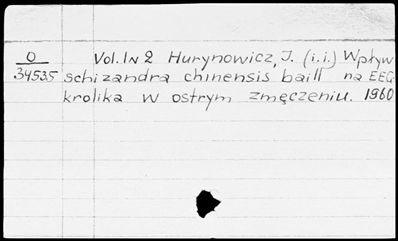 O Vol. 1N2 Hurynowicz, J. (i.i.) Wpływ
34535 schizandra chinensis baill na EEG
krolika w ostrym zmęczeniu. 1960